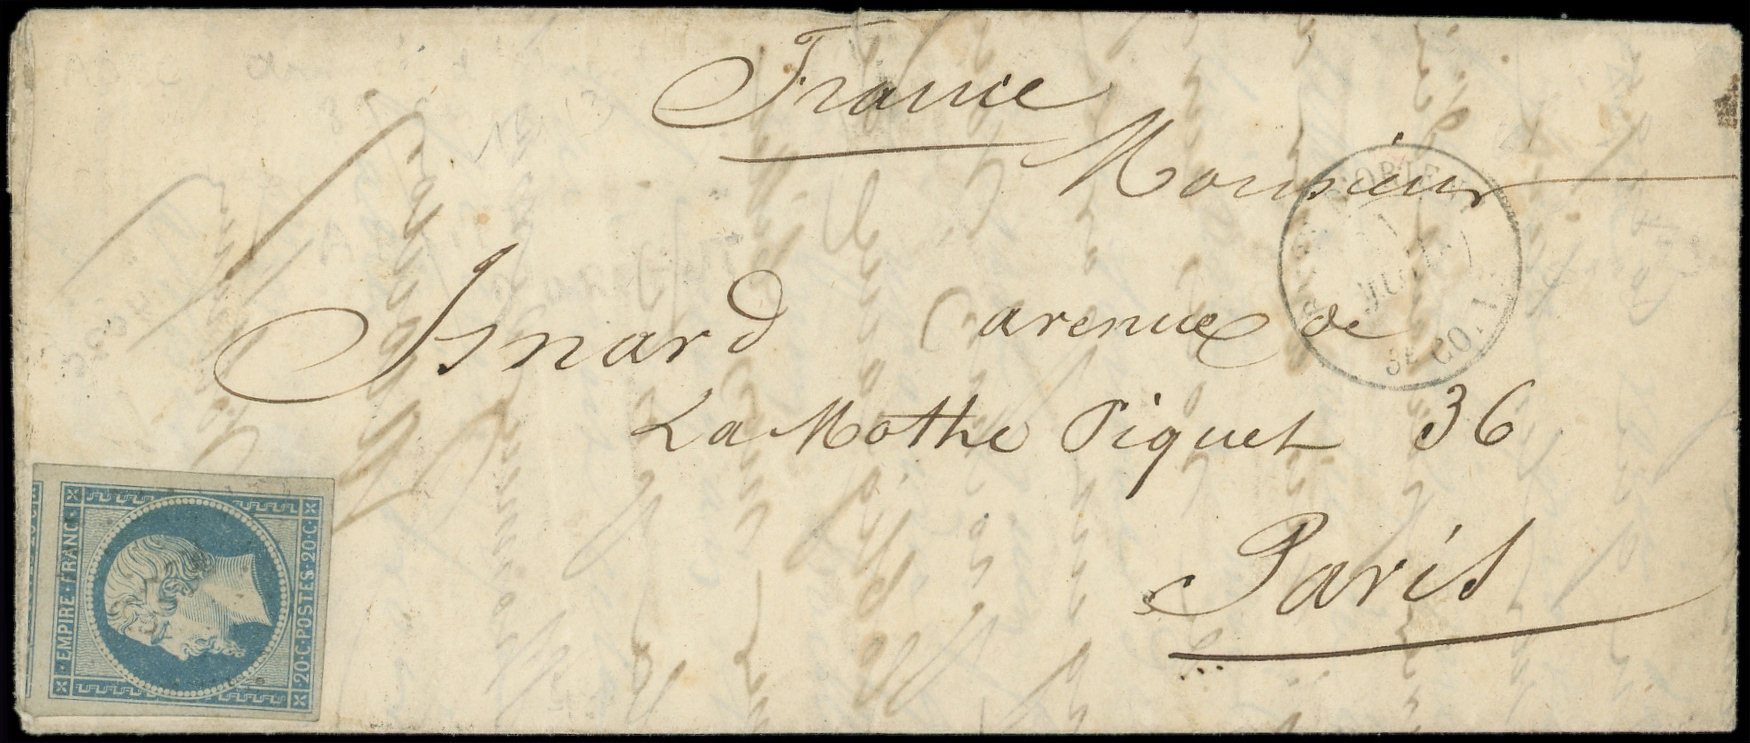 France
Monsieur
Isnard avenue de
La Mothe Piquet 36
Paris
EMPIRE·FRANC·
20·C·POSTES·20·C·